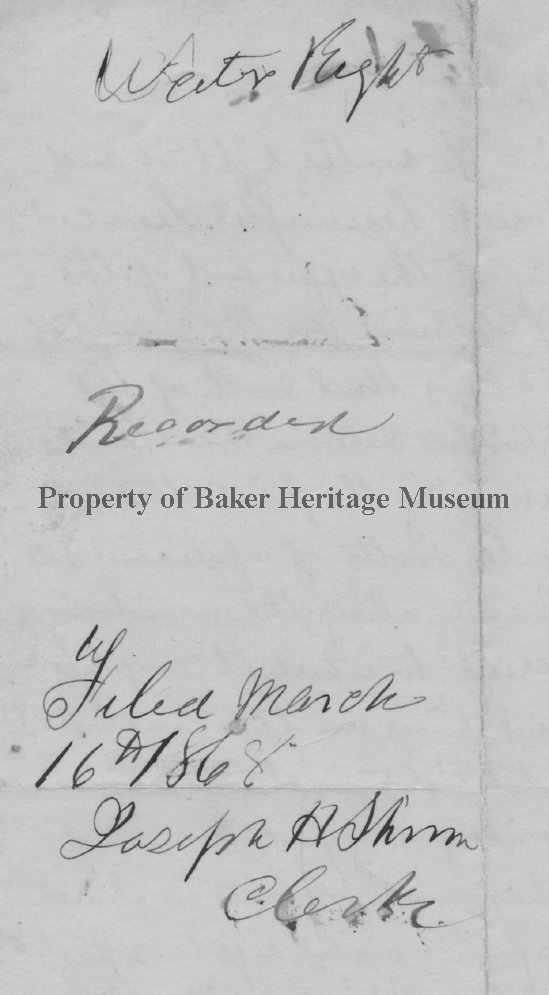 Water Right
Recorded
Property of Baker Heritage Museum
Filed March
16th 1868
Joseph H Shinn
Clerk